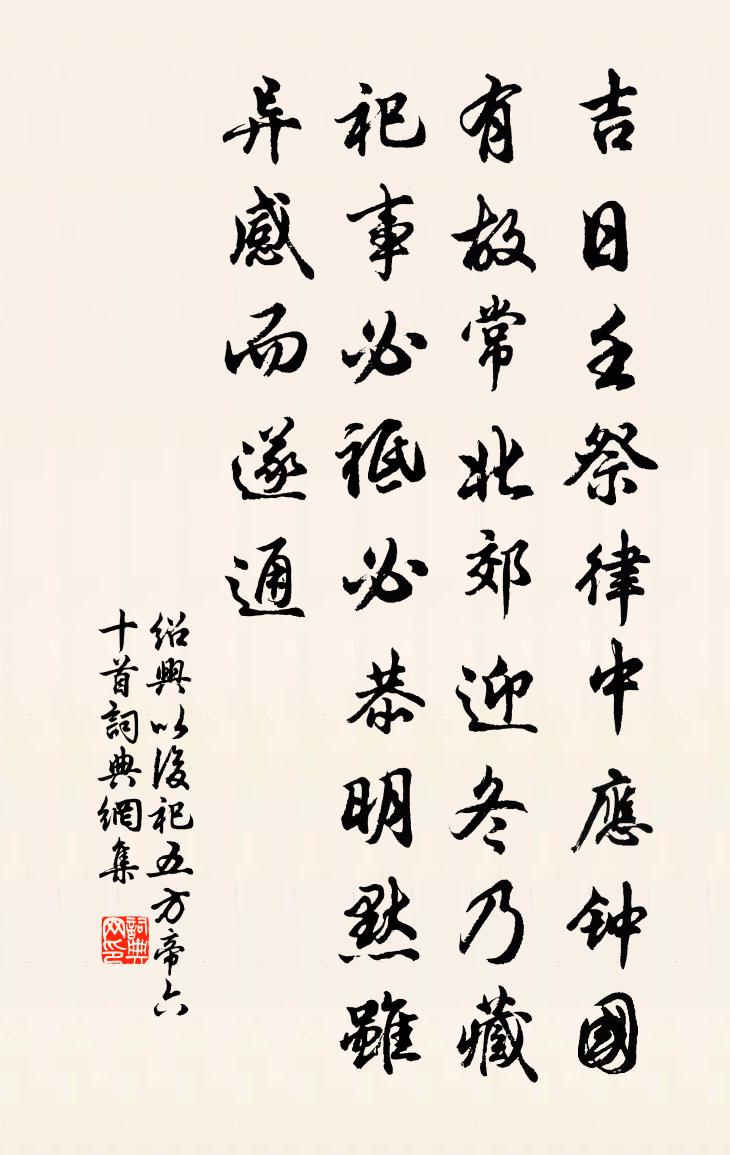 吉日壬祭律中應钟國
有故常北郊迎冬乃藏
祀事必祗必恭明默雖
异感而遂通
绍興以後祀五方帝六
十首詞典網集
詞典网印